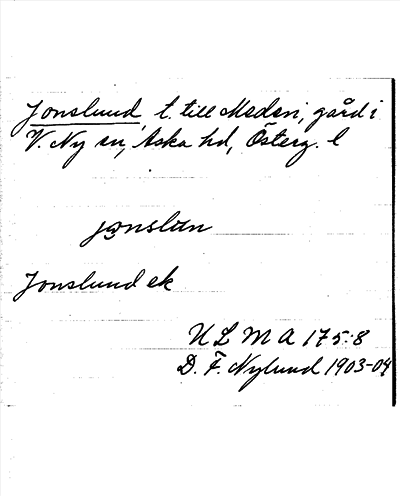 Jonslund, t. till Meden, gård i
V. Ny sn, Aska hd, Österg. l
jonslun
Jonslund ek
ULMA 175:8
D. F. Nylund 1903-04